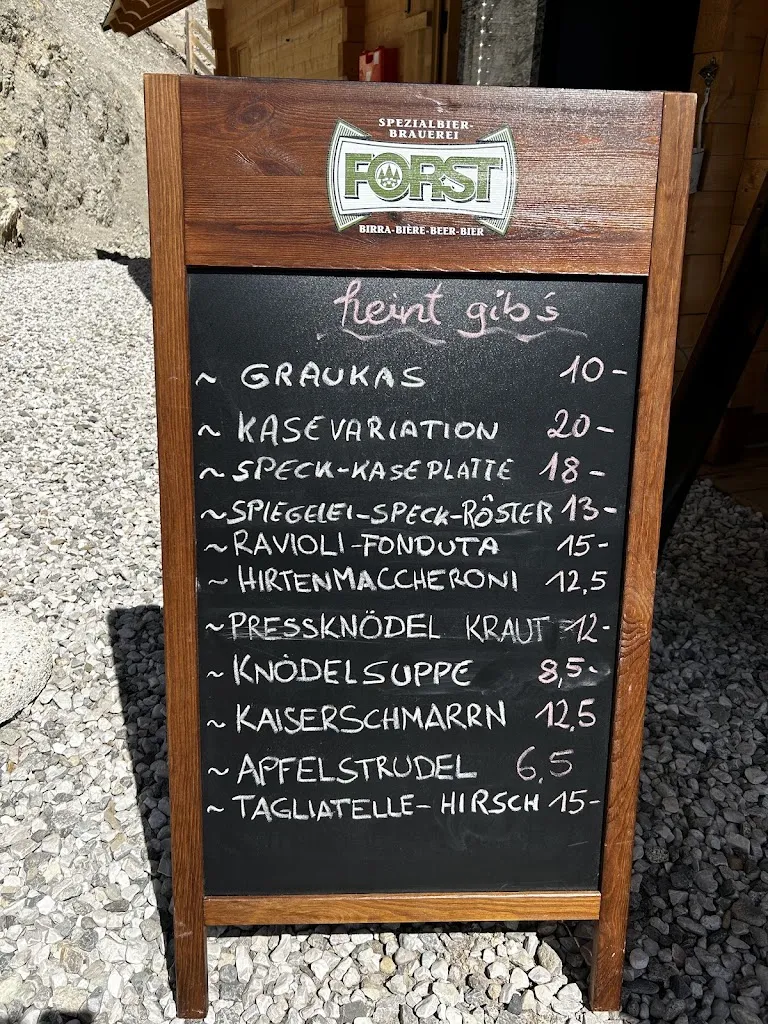 SPEZIALBIER-
BRAUEREI
FORST
BIRRA-BIÈRE-BEER-BIER
heint gib's
~ GRAUKAS 10-
~ KASEVARIATION 20-
~ SPECK-KASEPLATTE 18-
~ SPIEGELEI-SPECK-RÖSTER 13-
~ RAVIOLI-FONDUTA 15-
~ HIRTENMACCHERONI 12,5
~ PRESSKNÖDEL KRAUT 12-
~ KNÖDELSUPPE 8,5-
~ KAISERSCHMARRN 12,5
~ APFELSTRUDEL 6,5
~ TAGLIATELLE-HIRSCH 15-